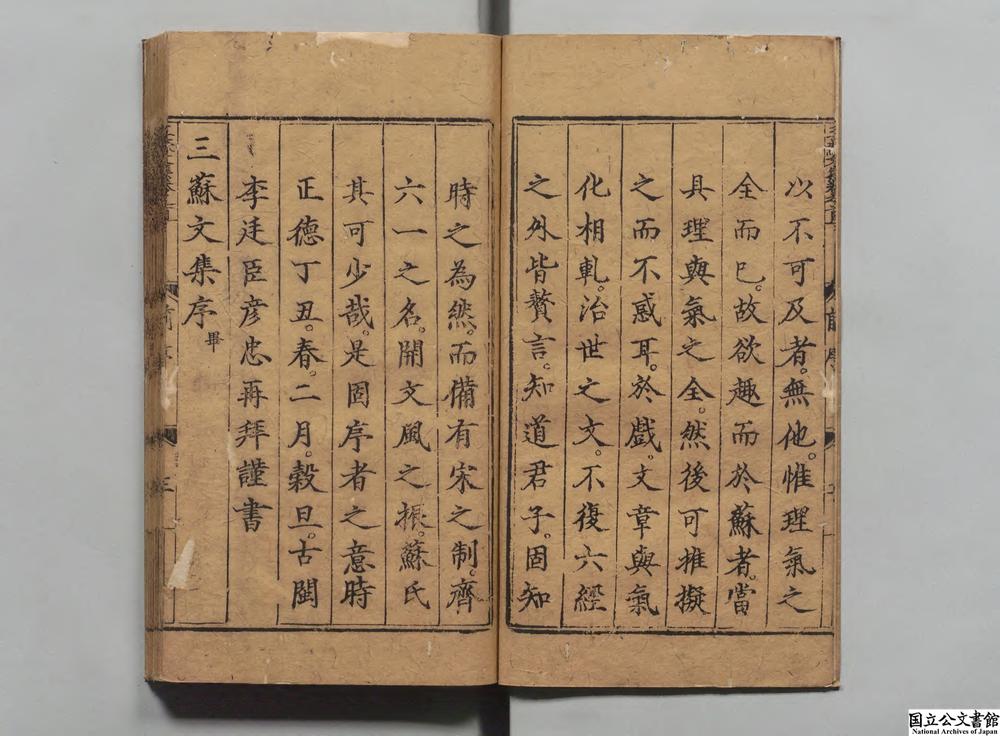 以不可及者。無他。惟理氣之
全而已。故欲趣而於蘇者。當
具理與氣之全。然後可推擬
之而不惑耳。於戲。文章與氣
化相軋。治世之文。不復六經
之外皆贅言。知道君子。固知
時之為然。而備有宋之制。齊
六一之名。開文風之振。蘇氏
其可少哉。是固序者之意時
正德丁丑。春。二月。穀旦。古閩
李廷臣彦忠再拜謹書
三蘇文集序畢
国立公文書館
National Archives of Japan